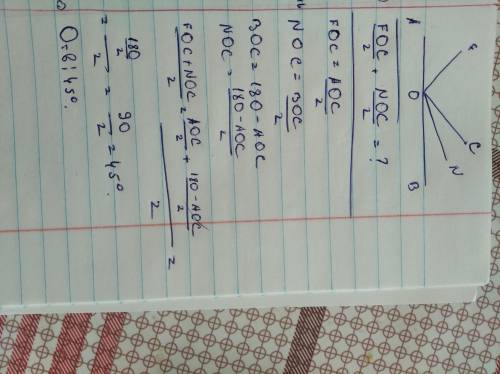 F C
N
A O B
FOC/2 + NOC/2 = ?
FOC = AOC/2
NOC = BOC/2
BOC = 180 - AOC
NOC = 180 - AOC/2
FOC + NOC/2 = AOC/2 + 180 - AOC/2 / 2 =
= 180/2 / 2 = 90/2 = 45°.
45°.